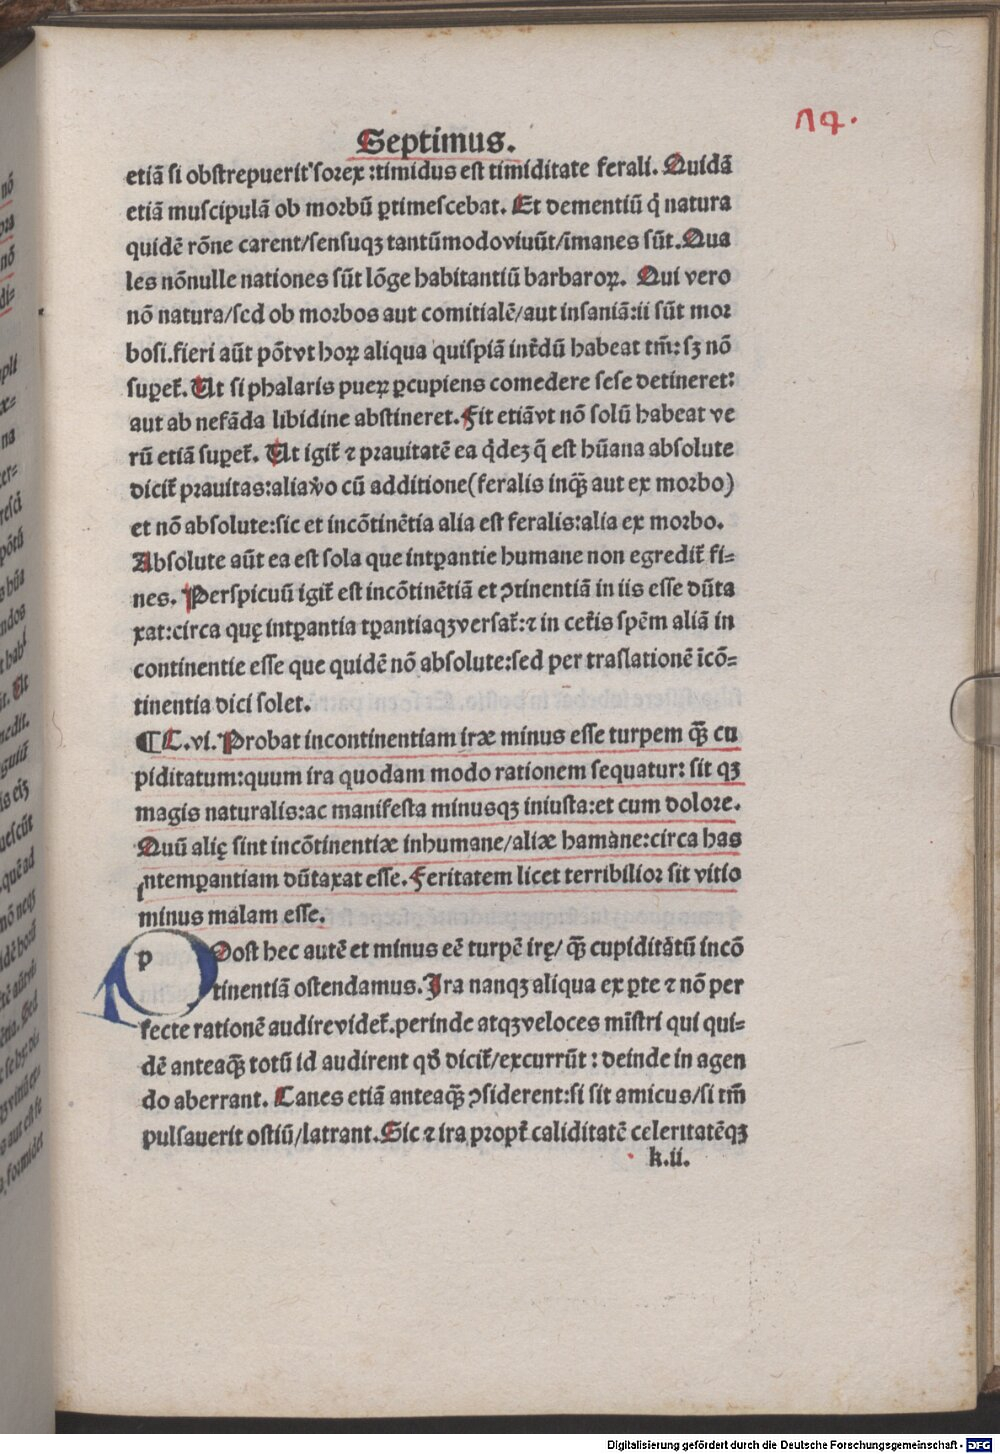 Septimus.
14.
etiā si obstrepuerit sorex :timidus est timiditate ferali. Quidā
etiā muscipulā ob morbū ꝑtimescebat. Et dementiū q̇ natura
quidē rōne carent/sensuqꝫ tantūmodoviuūt/īmanes sūt.Qua
les nōnulle nationes sūt lōge habitantiū barbaroꝝ. Qui vero
nō natura/sed ob morbos aut comitialē/aut insaniā:ii sūt mor
bosi.fieri aūt pōtvt hoꝝ aliqua quispiā int̄dū habeat tm̄: sꝫ nō
suꝑet̄. Ut si phalaris pueꝝ ꝑcupiens comedere sese detineret:
aut ab nefāda libidine abstineret.Fit etiāvt nō solū habeat ve
rū etiā suꝑet̄. Ut igit̄ ⁊ prauitatē ea q̇dez q̄ est hūana absolute
dicit̄ prauitas:aliav̇o cū additione(feralis inqꝫ̄ aut ex morbo)
et nō absolute:sic et incōtinētia alia est feralis:alia ex morbo.
Absolute aūt ea est sola que intꝑantie humane non egredit̄ fi=
nes. Perspicuū igit̄ est incōtinētiā et ꝯtinentiā in iis esse dūta
xat:circa quę intꝑantia tꝑantiaqꝫversat̄:⁊ in cet̄is spēm aliā in
continentie esse que quidē nō absolute:sed per traslationē īcō=
tinentia dici solet.
¶C.vi. Probat incontinentiam iræ minus esse turpem qꝫ̄ cu
piditatum:quum ira quodam modo rationem sequatur: sit qꝫ
magis naturalis:ac manifesta minusqꝫ iniusta:et cum dolore.
Quū alię sint incōtinentiæ inhumane/aliæ hamane:circa has
intemꝑantiam dūtaxat esse.Feritatem licet terribilior sit vitio
minus malam esse.
p Post hec autē et minus eē turpē irę/ qꝫ̄ cupiditātū incō
tinentiā ostendamus.Ira nanqꝫ aliqua ex ꝑte ⁊ nō per
fecte rationē audirevidet̄.perinde atqꝫveloces mīstri qui qui=
dē anteaqꝫ̄ totū id audirent qđ dicit̄/excurrūt : deinde in agen
do aberrant. Canes etiā anteaqꝫ̄ ꝯsiderent:si sit amicus/si tm̄
pulsauerit ostiū/latrant.Sic ⁊ ira propt̄ caliditatē celeritatēqꝫ
k.ii.
Digitalisierung gefördert durch die Deutsche Forschungsgemeinschaft - DFG